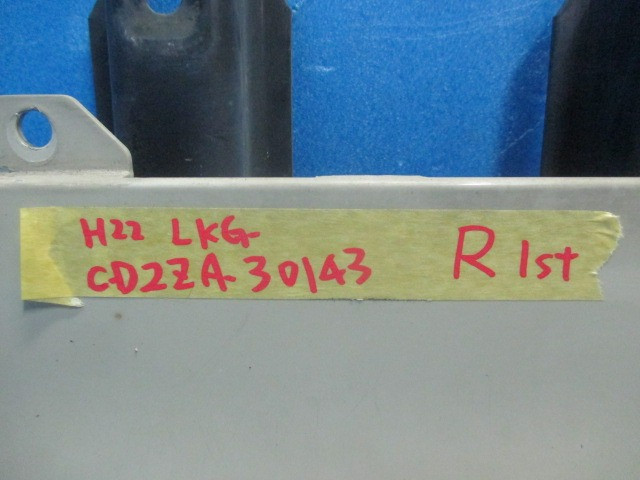 H22 LKG-
CD2ZA-30143 R 1st